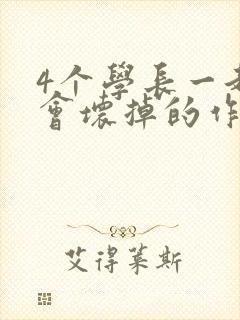 4个學長一
會壞掉的作
艾得莱斯